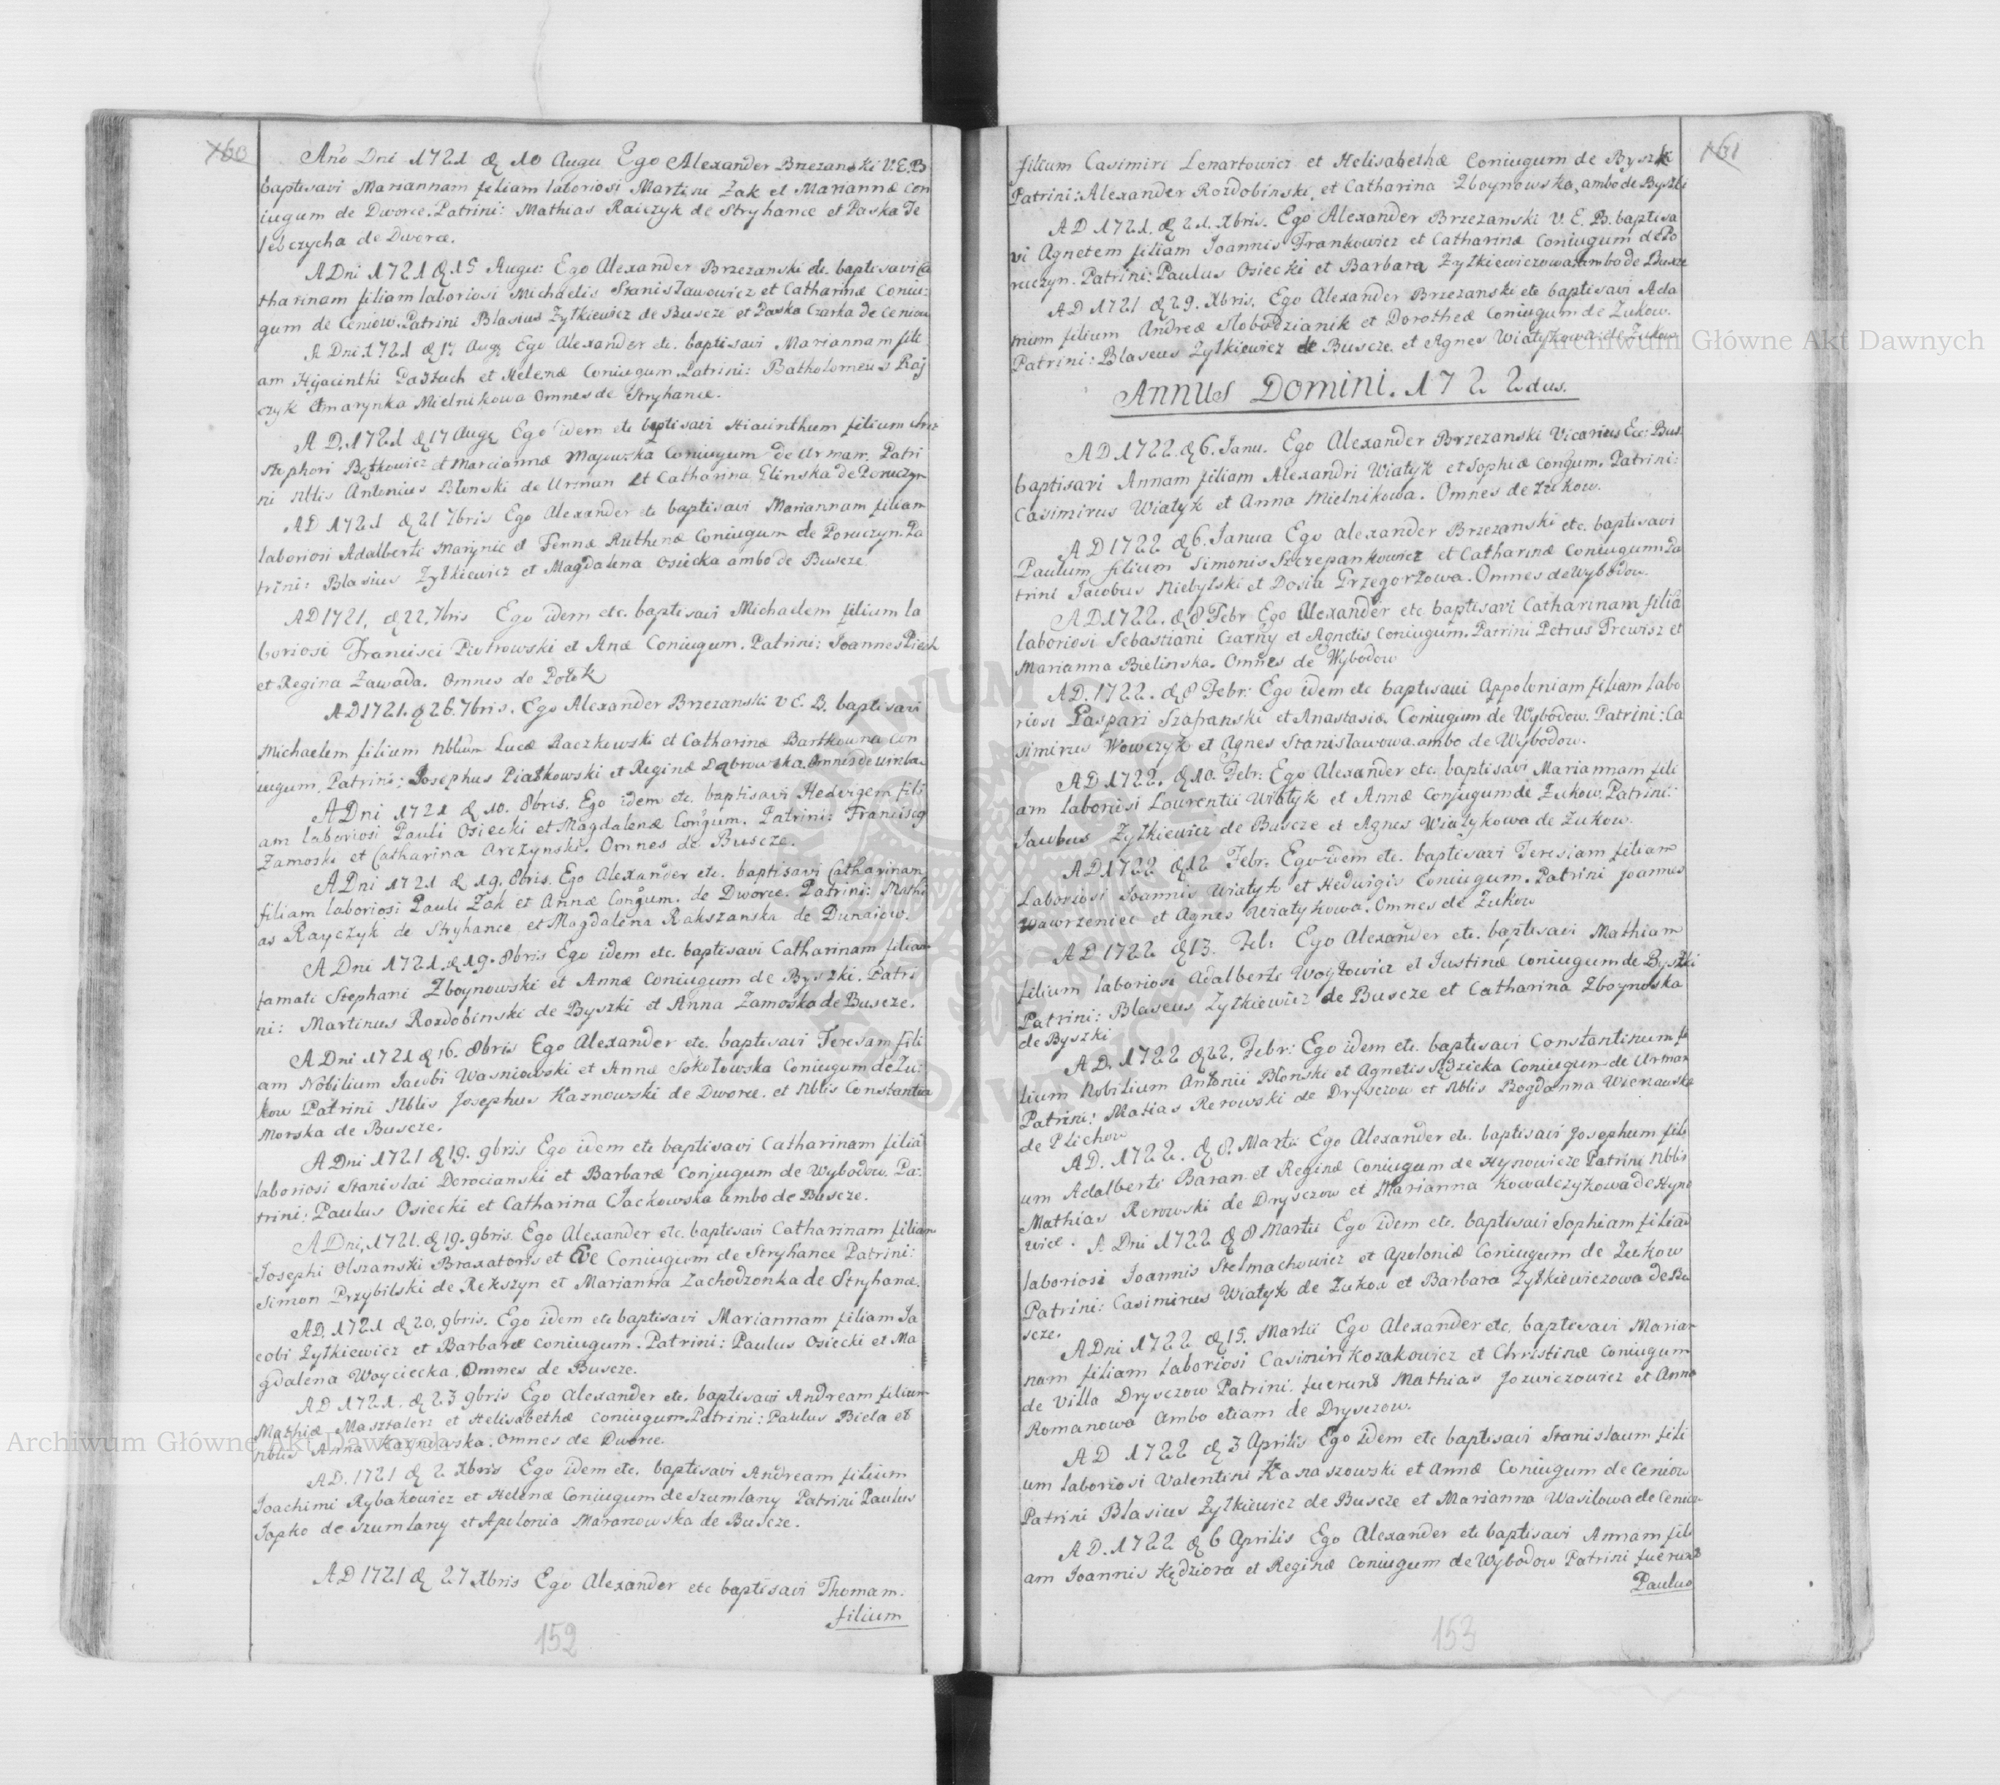 160
Año Dni 1721 d 10 Augu Ego Alexander Brzezanski V. E. B
baptisavi Mariannam filiam laboriosi Martini Zak et Mariannæ Con
iugum de Dworce. Patrini: Mathias Raiczyk de Stryhance et Paska Te
lebczycha de Dworce.
A Dni 1721 d 15 Augu: Ego Alexander Brzezanski etc. baptisavi Ca
tharinam filiam laboriosi Michaelis Stanisławowicz et Catharinæ Coniu:
gum de Ceniow. Patrini Blasius Zytkiewicz de Buscze et Paska Czarka de Ceniow
A Dni 1721 d 17 Augu Ego Alexander etc. baptisavi Mariannam fili
am Hyacinthi Pastuch et Helenæ Coniugum. Patrini: Batholomeus Raj
czyk et Marynka Mielnikowa Omnes de Stryhance.
A D. 1721 d 17 Augu Ego idem etc baptisavi Hiacinthum filium Chri
stophori Bętkowicz et Mariannæ Majewska Coniugum de Urman. Patri
ni Nblis Antonius Blonski de Urman et Catharina Glinska de Poruczyn
AD 1721 d 21 7bris Ego Alexander etc baptisavi Mariannam filiam
laboriosi Adalberti Marynic et Fennæ Ruthenæ Coniugum de Poruczyn. Pa
trini: Blasius Zytkiewicz et Magdalena Osiecka ambo de Buscze
AD 1721, d 22. 7bris Ego idem etc. baptisavi Michaelem filium la
boriosi Francisci Piotrowski et Anæ Coniugum. Patrini: Joannes Piech
et Regina Zawada. Omnes de Potok
AD 1721. d 26. 7bris. Ego Alexander Brzezanski V E. B. baptisavi
Michaelem filium Nblium Lucæ Raczkowski et Catharinæ Bartkowna Con
iugum, Patrini: Josephus Piatkowski et Reginæ Dąbrowska. Omnes de
A Dni 1721 d 10. 8bris. Ego idem etc. baptisavi Hedvigem fili
am laboriosi Pauli Osiecki et Magdalenæ Congum. Patrini: Francisc9
Zamoski et Catharina Arczynski. Omnes de Buscze.
A Dni 1721 d 19. 8bris. Ego Alexander etc. baptisavi Catharinam
filiam laboriosi Pauli Zak et Annæ Congum. de Dworce. Patrini: Mathi
as Rayczyk de Stryhance et Magdalena Rakszanska de Dunaiow.
A Dni 1721. d 19. 8bris Ego idem etc. baptisavi Catharinam filiam
famati Stephani Zboynowski et Annæ Coniugum de Byszki. Patri
ni: Martinus Rozdobinski de Byszki et Anna Zamoska de Buscze.
A Dni 1721 d 16. 8bris Ego Alexander etc. baptisavi Teresam fili
am Nobilium Iacobi Wasniowski et Annæ Sokołowska Coniugum de Zu:
kow Patrini Nblis Josephus Kaznowski de Dworce. et Nblis Constantia
Morska de Buscze.
A Dni 1721 d 19. 9bris Ego idem etc baptisavi Catharinam filiã
laboriosi Stanislai Dorocianski et Barbaræ Conjugum de Wybodow. Pa:
trini: Paulus Osiecki et Catharina Jackowska ambo de Buscze.
A Dni, 1721. d 19. 9bris. Ego Alexander etc. baptisavi Catharinam filiam
Josephi Olszanski Braxatoris et Evæ Coniugum de Stryhance Patrini:
Simon Przybilski de Rekszyn et Marianna Zachodzonka de Stryhance.
AD. 1721 d 20. 9bris. Ego idem etc baptisavi Mariannam filiam Ja
cobi Zytkiewicz et Barbaræ coniugum. Patrini: Paulus Osiecki et Ma
gdalena Woyciecka. Omnes de Buscze.
AD 1721. d 23 9bris Ego Alexander etc. baptisavi Andream filium
Mathiæ Masztalerz et Helisabethæ coniugum. Patrini: Paulus Biela et
Nblis Anna Kaznowska. Omnes de Dworce.
AD. 1721 d 2 Xbris Ego idem etc. baptisavi Andream filium
Joachimi Rybakowicz et Helenæ Coniugum de Szumlany Patrini Paulus
Japko de Szumlany et Apolonia Maranowska de Buscze.
AD 1721 d 27 Xbris Ego Alexander etc baptisavi Thomam.
filium
152
161
filium Casimiri Lenartowicz et Helisabethæ Coniugum de Byszki
Patrini: Alexander Rozdobinski, et Catharina Zboynowska, ambo de Byszki
AD 1721. d 21. Xbris. Ego Alexander Brzezanski V. E. B. baptisa
vi Agnetem filiam Ioannis Frankowicz et Catharinæ Coniugum de Po
ruczyn. Patrini: Paulus Osiecki et Barbara Zytkiewiczowa ambo de Buscze
AD 1721 d 29. Xbris. Ego Alexander Brzezanski etc baptisavi Ada
mum filium Andreæ Słobodzianik et Dorotheæ Coniugum de Zukow.
Patrini: Blaseus Zytkiewicz de Buscze. et Agnes Wiatykowa de Zukow
Annus Domini. 1722dus.
AD 1722. d 6. Ianu. Ego Alexander Brzezanski Vicarius Ecc: Bus.
baptisavi Annam filiam Alexandri Wiatyk et Sophiæ Congum. Patrini:
Casimirus Wiatyk et Anna Mielnikowa. Omnes de Zukow.
AD 1722 d 6. Ianua Ego Alexander Brzezanski etc. baptisavi
Paulum filium Simonis Szczepankowicz et Catharinæ Coniugum Pa
trini Jacobus Niebylski et Dosia Grzegorzowa. Omnes de Wybodow.
AD 1722. d 8 Febr Ego Alexander etc baptisavi Catharinam filiã
laboriosi Sebastiani Czarny et Agnetis Coniugum. Patrini Petrus Trewisz et
Marianna Bielinska. Omnes de Wybodow
AD. 1722. d 8 Febr: Ego idem etc baptisavi Appoloniam filiam labo
riosi Gaspari Szafranski et Anastasiæ Coniugum de Wybodow. Patrini: Ca
simirus Wowczyk et Agnes Stanisławowa. ambo de Wybodow.
AD 1722. d 10. Febr: Ego Alexander etc. baptisavi Mariannam fili
am laboriosi Laurentii Wiatyk et Annæ Conjugum de Zukow. Patrini:
Jacobus Zytkiewicz de Buscze et Agnes Wiatykowa de Zukow.
AD 1722 d 12 Febr. Ego idem etc. baptisavi Teresiam filiam
Laboriosi Ioannis Wiatyk et Hedwigis Coniugum. Patrini Joannes
Wawrzeniec et Agnes Wiatykowa. Omnes de Zukow
AD 1722 d 13. Feb: Ego Alexander etc. baptisavi Mathiam
filium laboriosi Adalberti Woytowicz et Justinæ Coniugum de Byszki
Patrini: Blaseus Zytkiewicz de Buscze et Catharina Zboynowska
de Byszki
A D. 1722 d 22. Febr: Ego idem etc. baptisavi Constantinum fi
lium Nobilium Antonii Błonski et Agnetis Rdzicka Coniugum de Urman
Patrini: Matias Rerowski de Drysczow et Nblis Bogdanna Wiernawska
de Plichow
AD. 1722. d 8. Martii Ego Alexander etc. baptisavi Josephum fili
um Adalberti Baran et Reginæ Coniugum de Hynowicze Patrini Nblis
Mathias Rerowski de Drysczow et Marianna Kowalczykowa de Hyno
wice. A Dni 1722 d 8 Martii Ego idem etc. baptisavi Sophiam filiam
laboriosi Ioannis Stelmachowicz et Apoloniæ Coniugum de Zukow
Patrini: Casimirus Wiatyk de Zukow et Barbara Zytkiewiczowa de Bu
scze.
A Dni 1722 d 15. Martii Ego Alexander etc. baptisavi Marian
nam filiam laboriosi Casimiri Kozakowicz et Christinæ Coniugum
de villa Drysczow Patrini. fuerunt Mathias Jozwiczowicz et Anna
Romanowa Ambo etiam de Drysczow.
AD 1722 d 3 Aprilis Ego idem etc baptisavi Stanislaum fili
um laboriosi Valentini Karaszowski et Annæ Coniugum de Ceniow
Patrini Blasius Zytkiewicz de Buscze et Marianna Wasilowa de Ceniow
AD. 1722 d 6 Aprilis Ego Alexander etc baptisavi Annam fili
am Ioannis Kędziora et Reginæ Coniugum de Wybodow Patrini fuerunt
Paulus
153
Archiwum Główne Akt Dawnych
Archiwum Główne Akt Dawnych